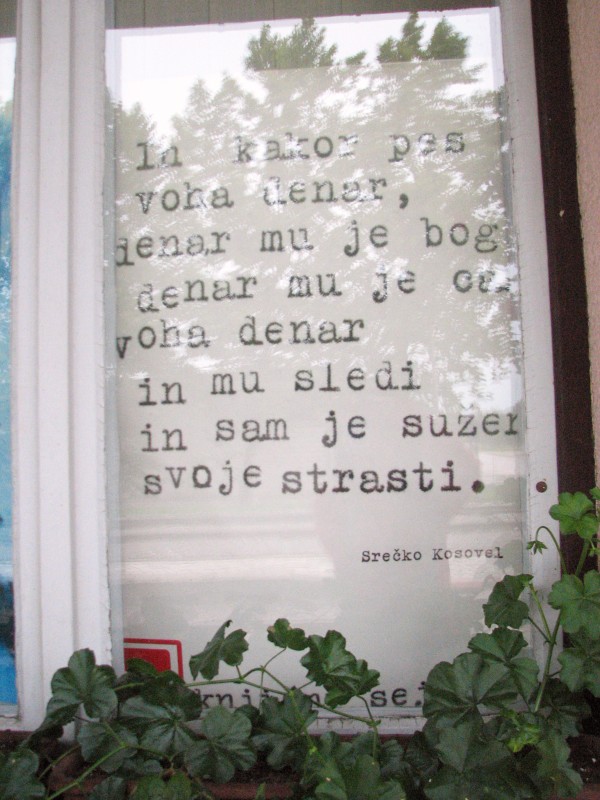 In kakor pes
voha denar,
denar mu je bog
denar mu je
voha denar
in mu sledi
in sam je
svoje strasti.
Srečko Kosovel